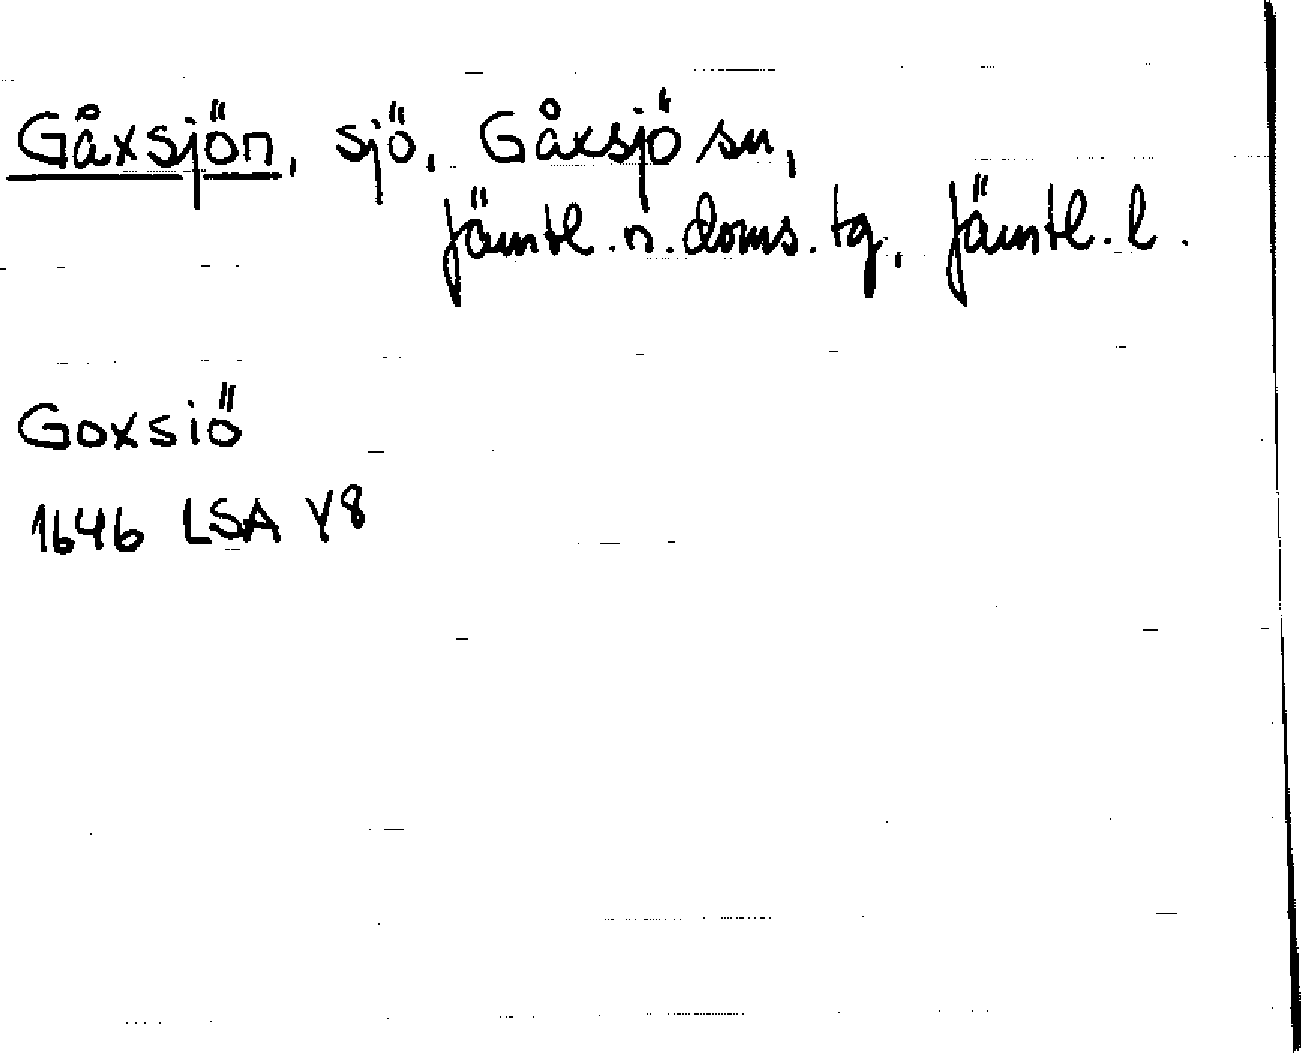 Gåxsjön, sjö, Gåxsjö sn,
Jämtl. n. doms. tg, Jämtl. l.
Goxsiö
1646 LSA Y8